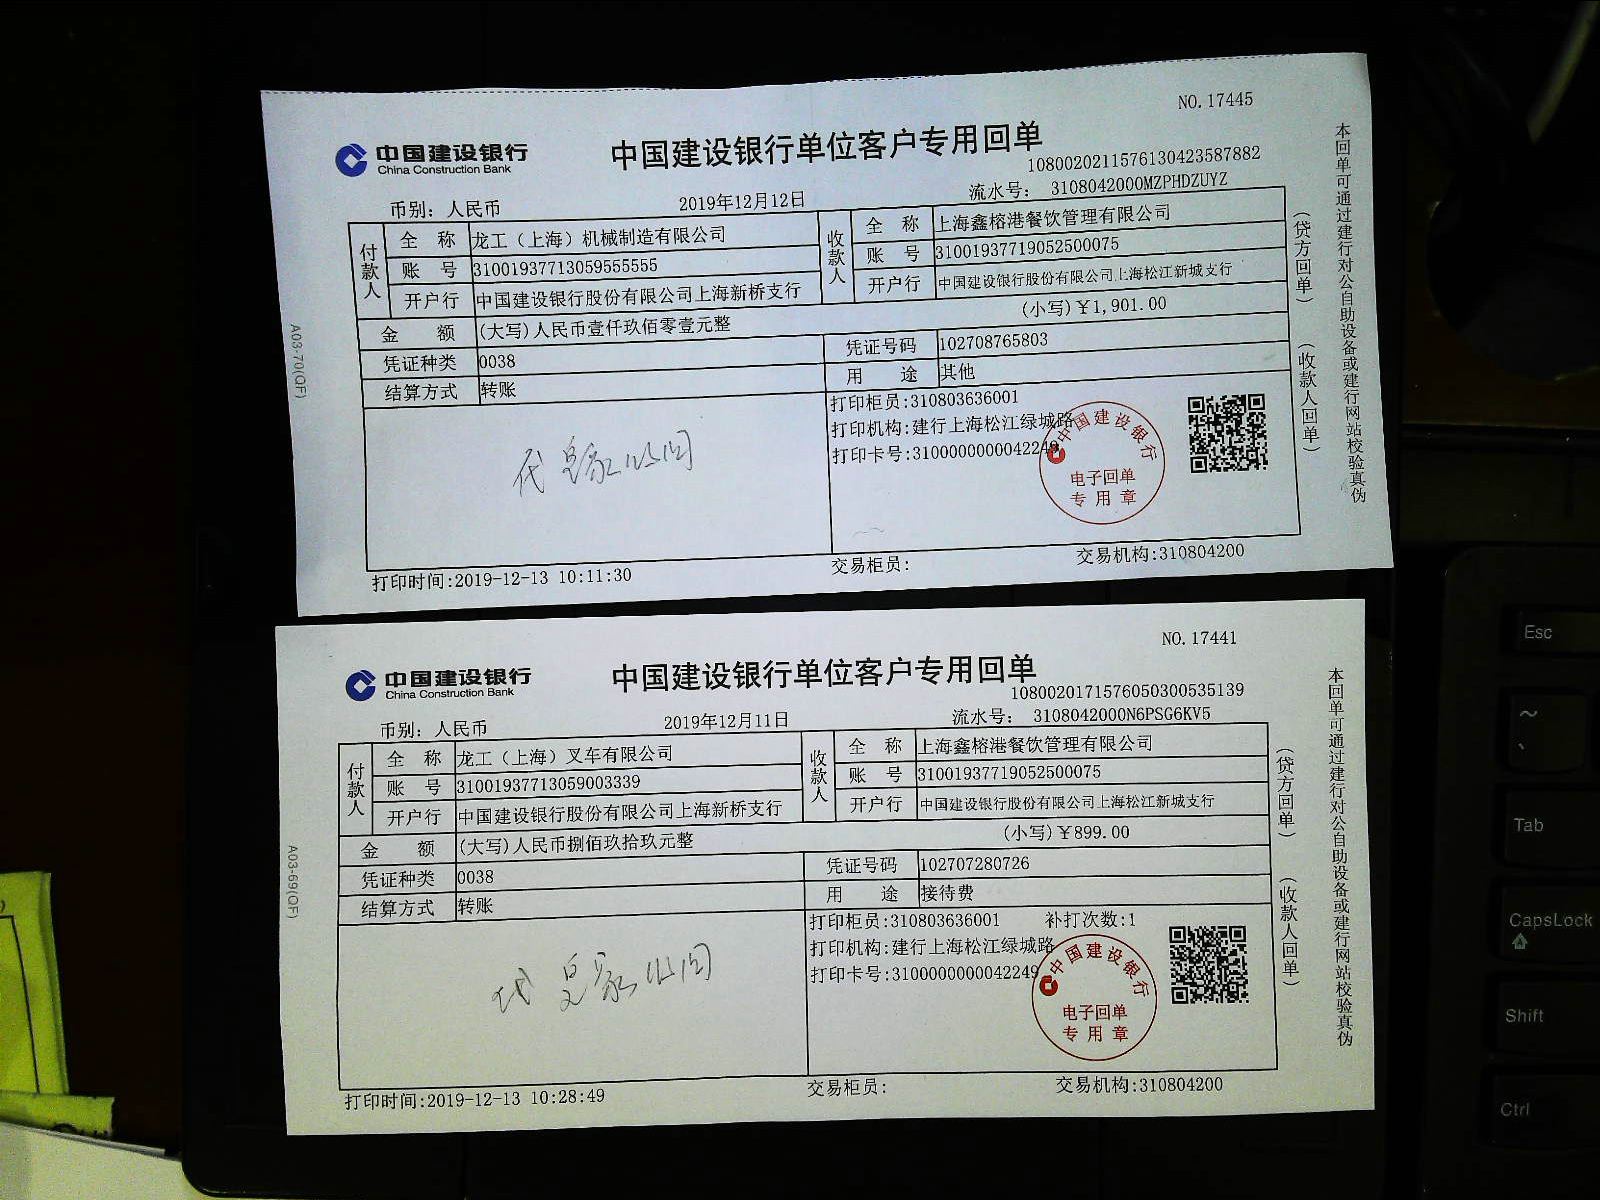 NO.17445
中国建设银行
China Construction Bank
中国建设银行单位客户专用回单
1080020211576130423587882
币别：人民币 2019年12月12日 流水号： 3108042000MZPHDZUYZ
付款人
全 称 龙工（上海）机械制造有限公司
账 号 31001937713059555555
开户行 中国建设银行股份有限公司上海新桥支行
收款人
全 称 上海鑫榕港餐饮管理有限公司
账 号 31001937719052500075
开户行 中国建设银行股份有限公司上海松江新城支行
金 额 (大写)人民币壹仟玖佰零壹元整 (小写)￥1,901.00
凭证种类 0038 凭证号码 102708765803
结算方式 转账 用 途 其他
打印柜员:310803636001
打印机构:建行上海松江绿城路
打印卡号:3100000000042249
中国建设银行
电子回单
专用章
代
打印时间:2019-12-13 10:11:30 交易柜员: 交易机构:310804200
A03-70(QF)
（贷方回单）
（收款人回单）
本回单可通过建行对公自助设备或建行网站校验真伪
NO.17441
中国建设银行
China Construction Bank
中国建设银行单位客户专用回单
1080020171576050300535139
币别：人民币 2019年12月11日 流水号： 3108042000N6PSG6KV5
付款人
全 称 龙工（上海）叉车有限公司
账 号 31001937713059003339
开户行 中国建设银行股份有限公司上海新桥支行
收款人
全 称 上海鑫榕港餐饮管理有限公司
账 号 31001937719052500075
开户行 中国建设银行股份有限公司上海松江新城支行
金 额 (大写)人民币捌佰玖拾玖元整 (小写)￥899.00
凭证种类 0038 凭证号码 102707280726
结算方式 转账 用 途 接待费
打印柜员:310803636001 补打次数:1
打印机构:建行上海松江绿城路
打印卡号:3100000000042249
中国建设银行
电子回单
专用章
代
打印时间:2019-12-13 10:28:49 交易柜员: 交易机构:310804200
A03-69(QF)
（贷方回单）
（收款人回单）
本回单可通过建行对公自助设备或建行网站校验真伪
Esc
~
、
Tab
CapsLock
Shift
Ctrl